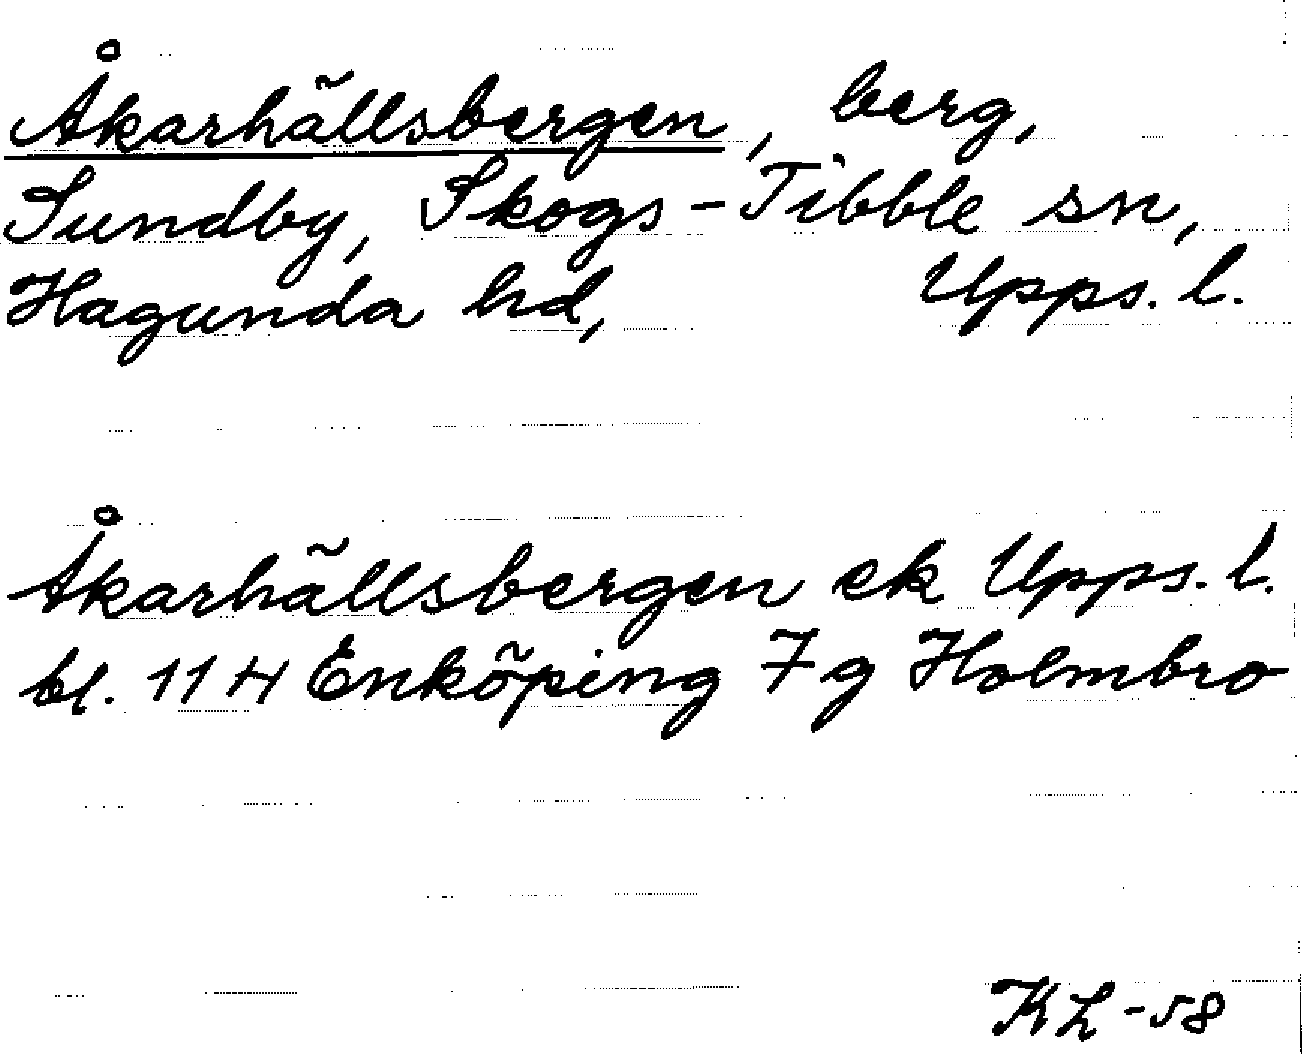 Åkarhällsbergen, berg,
Sundby, Skogs-Tibble sn,
Hagunda hd, Upps. l.
Åkarhällsbergen ek Upps. l.
bl. 11 H Enköping 7 g Holmbro
KL -58